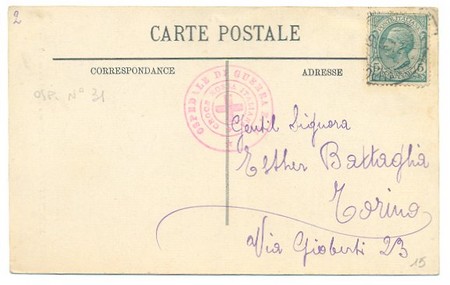 2
CARTE POSTALE
CORRESPONDANCE
ADRESSE
osp. N° 31
OSPEDALE DI GUERRA
CROCE ROSSA ITALIANA
Gentil Signora
Esther Battaglia
Torino
Via Gioberti 23
15